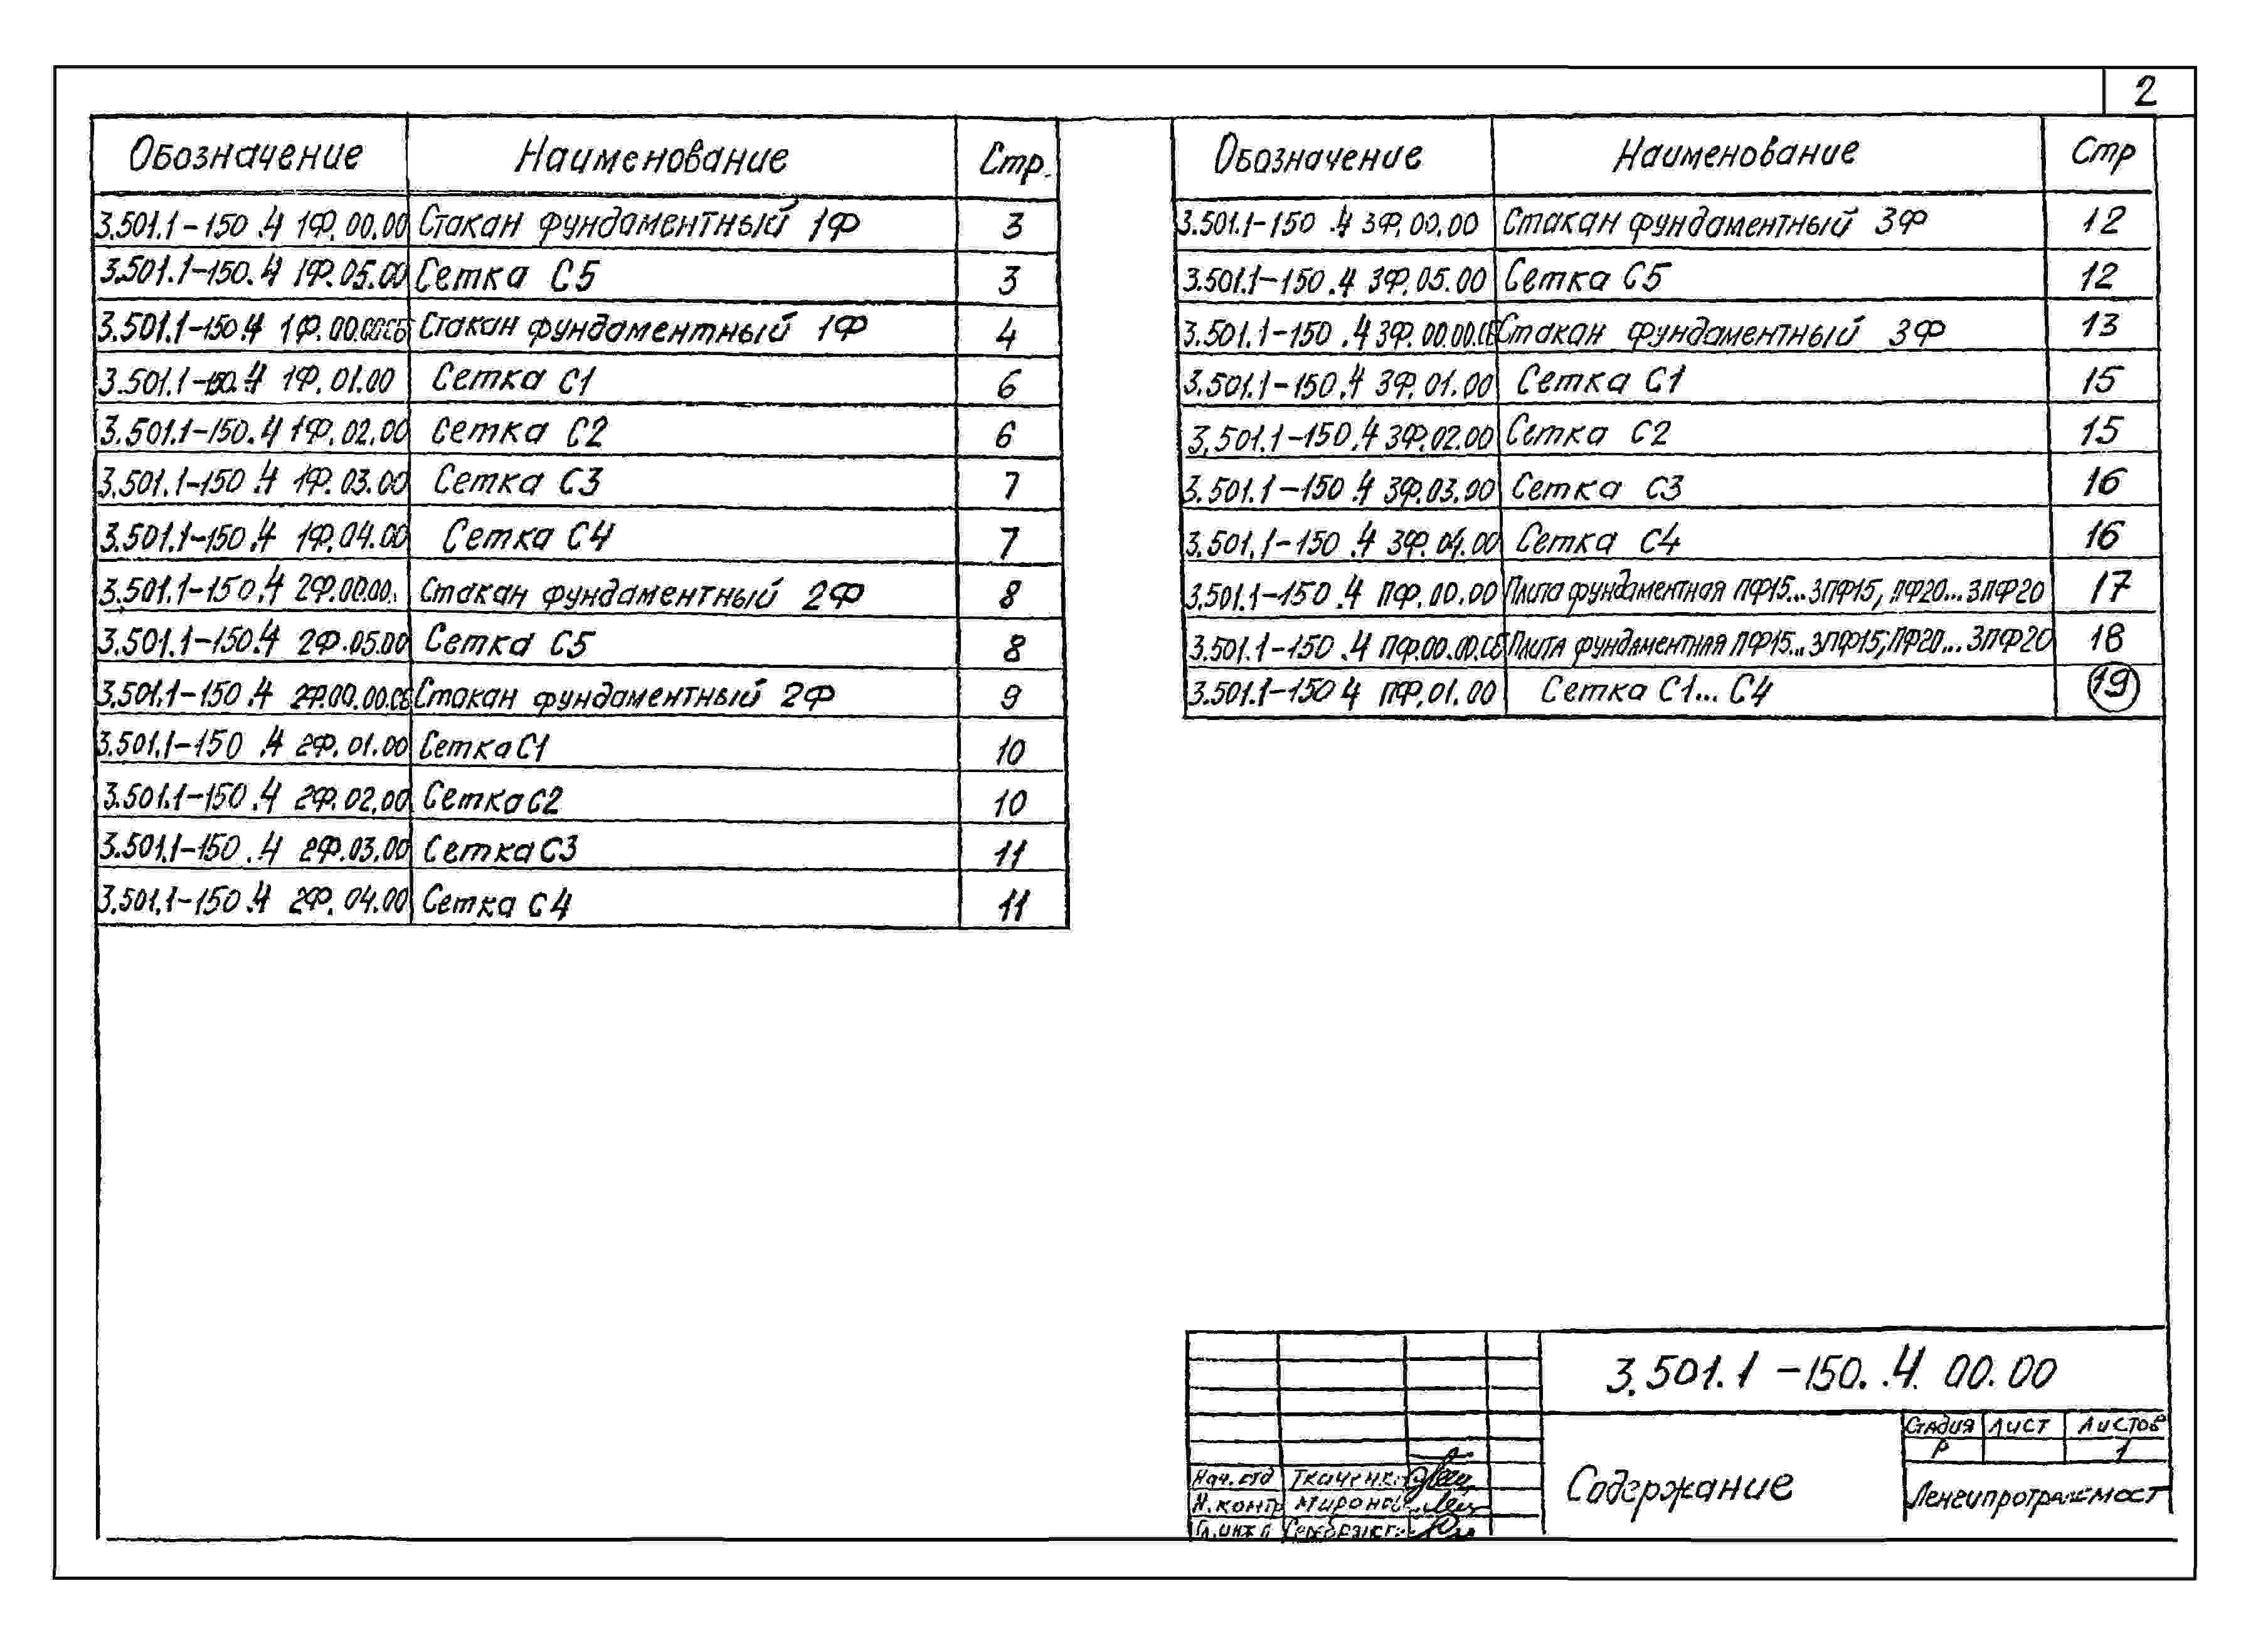 2
Обозначение Наименование Стр.
3.501.1-150.4 1Ф.00.00 Стакан фундаментный 1Ф 3
3.501.1-150.4 1Ф.05.00 Сетка С5 3
3.501.1-150.4 1Ф.00.00СБ Стакан фундаментный 1Ф 4
3.501.1-150.4 1Ф.01.00 Сетка С1 6
3.501.1-150.4 1Ф.02.00 Сетка С2 6
3.501.1-150.4 1Ф.03.00 Сетка С3 7
3.501.1-150.4 1Ф.04.00 Сетка С4 7
3.501.1-150.4 2Ф.00.00. Стакан фундаментный 2Ф 8
3.501.1-150.4 2Ф.05.00 Сетка С5 8
3.501.1-150.4 2Ф.00.00.СБ Стакан фундаментный 2Ф 9
3.501.1-150.4 2Ф.01.00 Сетка С1 10
3.501.1-150.4 2Ф.02.00 Сетка С2 10
3.501.1-150.4 2Ф.03.00 Сетка С3 11
3.501.1-150.4 2Ф.04.00 Сетка С4 11
Обозначение Наименование Стр
3.501.1-150.4 3Ф.00.00 Стакан фундаментный 3Ф 12
3.501.1-150.4 3Ф.05.00 Сетка С5 12
3.501.1-150.4 3Ф.00.00.СБ Стакан фундаментный 3Ф 13
3.501.1-150.4 3Ф.01.00 Сетка С1 15
3.501.1-150.4 3Ф.02.00 Сетка С2 15
3.501.1-150.4 3Ф.03.00 Сетка С3 16
3.501.1-150.4 3Ф.04.00 Сетка С4 16
3.501.1-150.4 ПФ.00.00 Плита фундаментная ПФ15...3ПФ15, ПФ20...3ПФ20 17
3.501.1-150.4 ПФ.00.00.СБ Плита фундаментная ПФ15...3ПФ15; ПФ20...3ПФ20 18
3.501.1-150 4 ПФ.01.00 Сетка С1...С4 19
3.501.1-150..4. 00.00
Стадия Лист Листов
Р 1
Содержание
Ленгипротрансмост
Нач. отд Ткаченко
Н.контр Миронов
Гл.инж.п